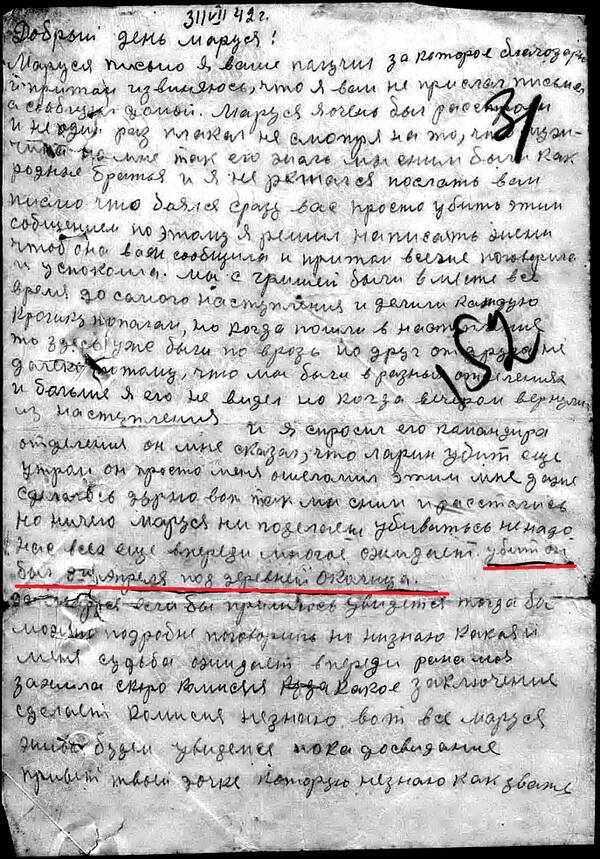 31/VII 42 г.
Добрый день Маруся!
Маруся письмо я ваше получил за которое благодарю
и притом извиняюсь, что я вам не прислал письма,
а сообщил домой. Маруся я очень был расстроен
и не один раз плакал не смотря на то, что
мне так его жаль мы сним были как
родные братья и я не решался послать вам
письмо что боялся сразу вас просто убить этим
сообщением по этому я решил написать жены
чтоб она вам сообщила и притом все же поговорила
и успокоила. Мы с Гришей были в месте все
время до самого наступления и делили каждую
крошку пополам, но когда пошли в наступление
то здесь уже были по врозь но друг от друга не
далеко потому, что мы были в разных отделениях
и больше я его не видел но когда вечером вернулись
из наступления и я спросил его командира
отделения он мне сказал, что Ларин убит еще
утром он просто меня ошеломил этим мне даже
сделалось дурно вот так мы сним и расстались
Но ничего Маруся ни поделаеш убиваться ненадо
Нас всех еще впереди многое ожидает. убит он
был Апреля под деревней Околица.
да Маруся если бы пришлось увидется тогда бы
можно подробне поговорить но низнаю какая и
меня судьба ожидает впереди рана моя
зажила скоро комисия какое заключение
сделает комисия незнаю вот все Маруся
живы будем увидемся пока досвидание
привет твоей дочке которую незнаю как звать
31
152